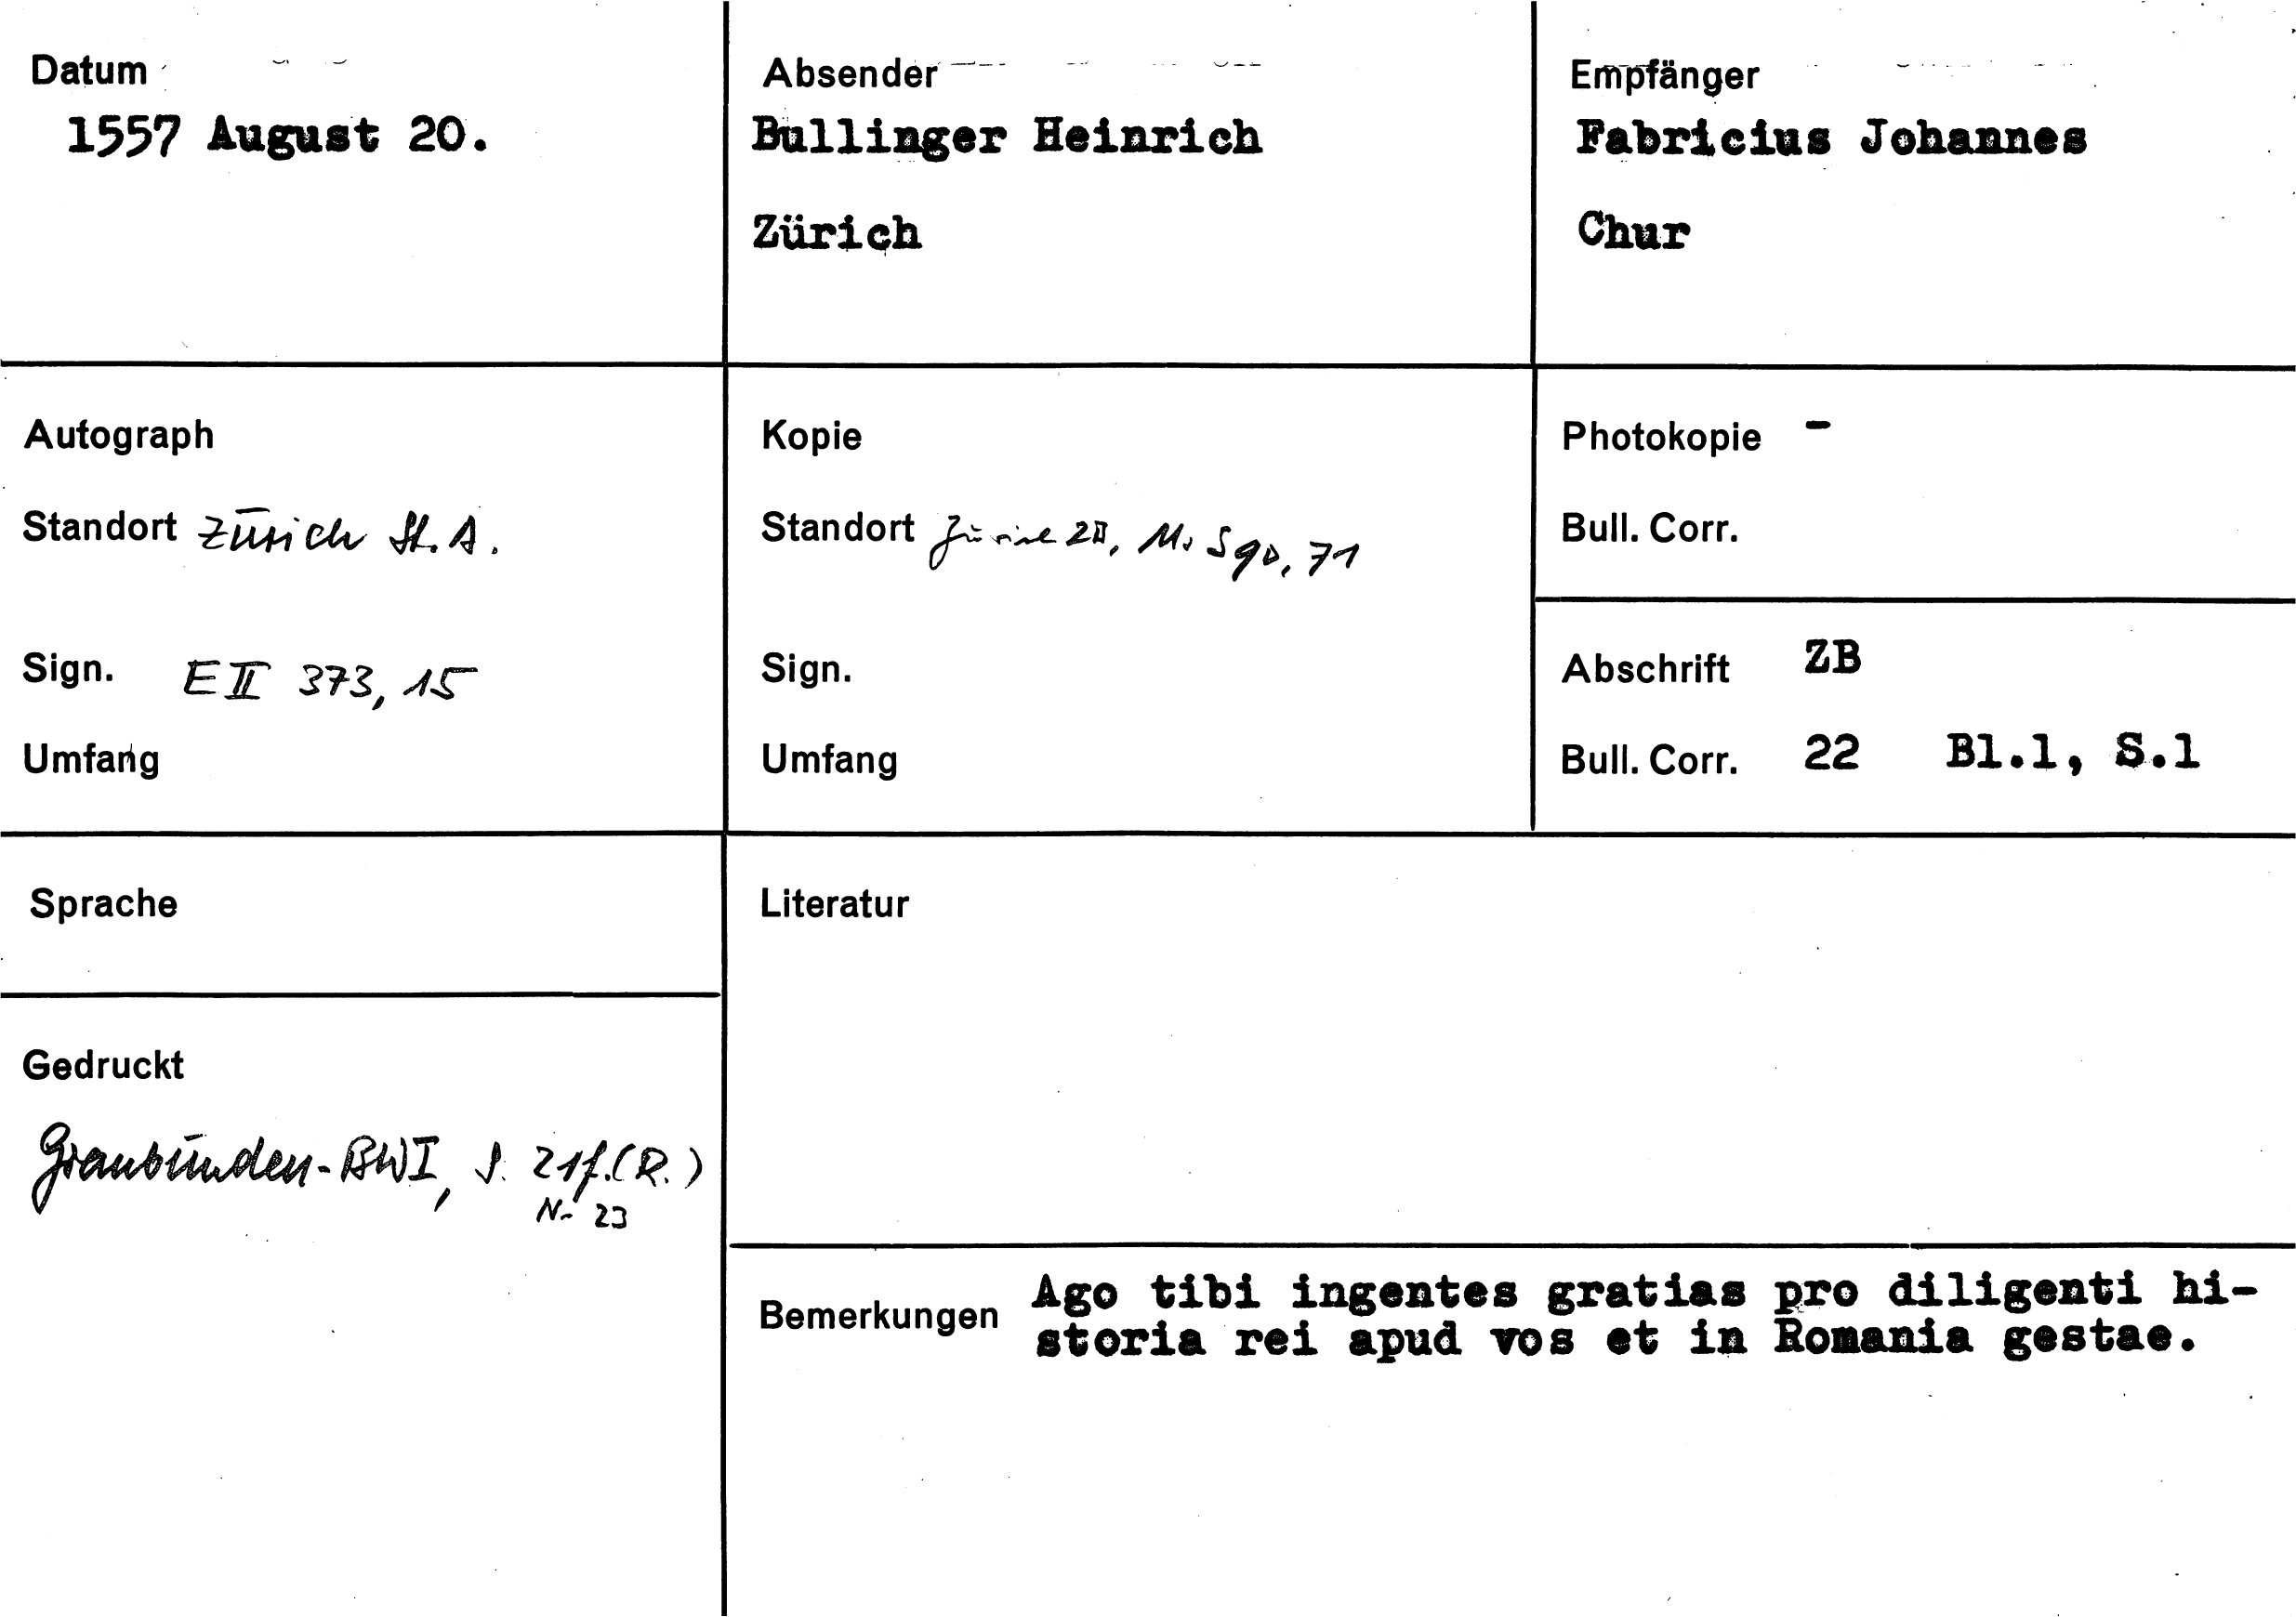 Datum
1557 August 20.
Absender
Bullinger Heinrich
Zürich
Empfänger
Fabricius Johannes
Chur
Autograph
Standort Zürich St. A.
Sign. E II 373, 15
Umfang
Kopie
Standort Zürich ZB, Ms S 90, 71
Sign.
Umfang
Photokopie -
Bull. Corr.
Abschrift ZB
Bull. Corr. 22 Bl.1, S.1
Sprache
Gedruckt
Graubünden-BW I, S. 21f. (R.)
Nr 23
Literatur
Bemerkungen Ago tibi ingentes gratias pro diligenti hi-
storia rei apud vos et in Romania gestae.